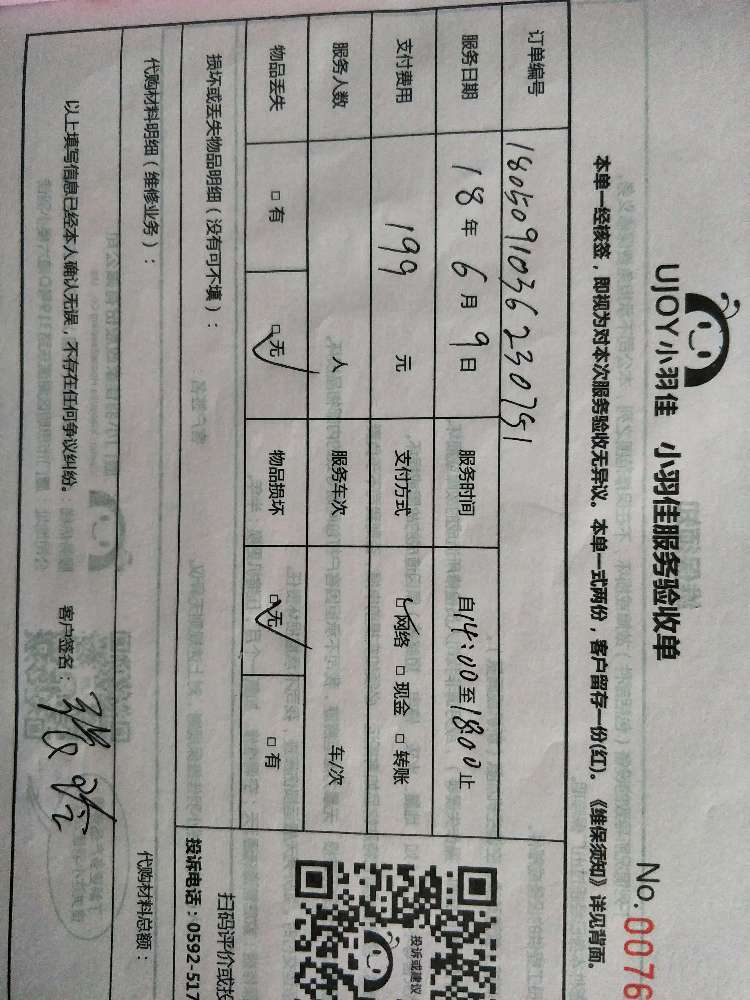 UJOY小羽佳 小羽佳服务验收单
No. 0076
本单一经核签，即视为对本次服务验收无异议。本单一式两份，客户留存一份(红)。《维保须知》详见背面。
订单编号 1805091036230751
服务日期 18年6月9日 服务时间 自14:00至18:00止
支付费用 199 元 支付方式 □网络 □现金 □转账
服务人数 人 服务车次 车/次
物品丢失 □有 □无 物品损坏 □无 □有
损坏或丢失物品明细（没有可不填）：
扫码评价或投
投诉或建议
投诉电话：0592-517
代购材料明细（维修业务）： 代购材料总额：
以上填写信息已经本人确认无误，不存在任何争议纠纷。 客户签名：